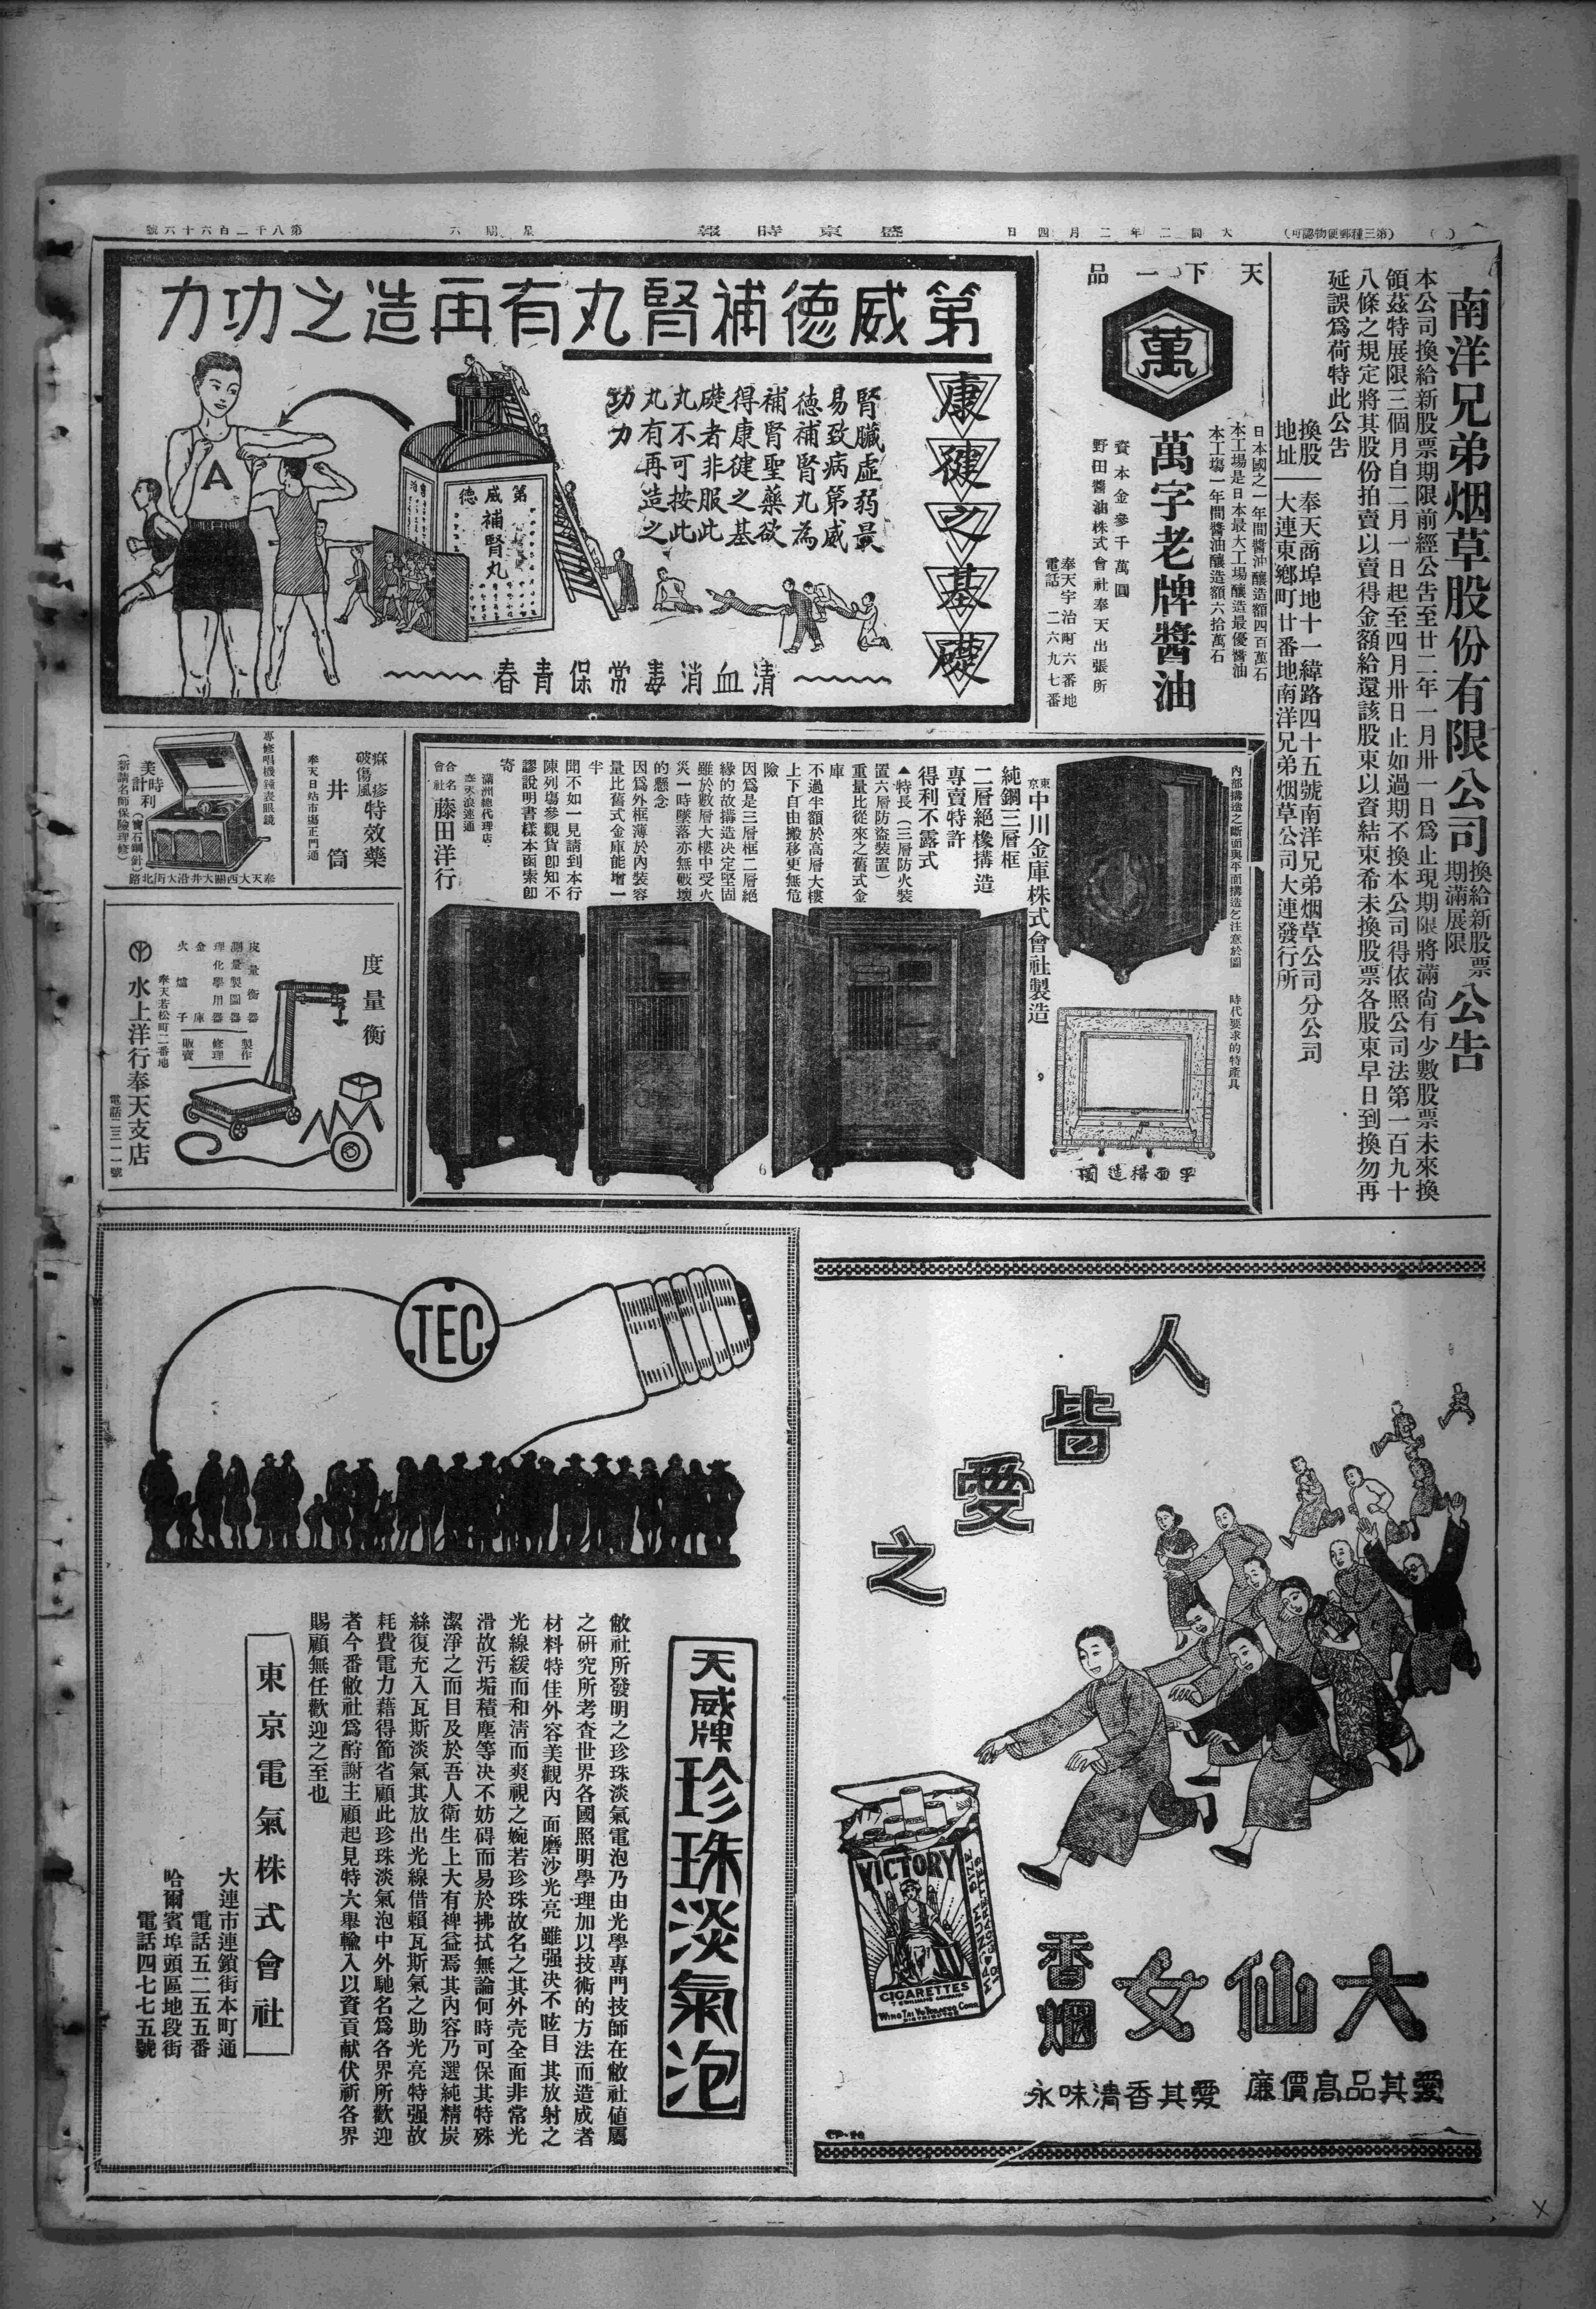 (第三種郵便物認可)
大同二年二月四日
盛京時報
星期六
第八千二百六十六號
南洋兄弟烟草股份有限公司換給新股票期滿展限公告
本公司換給新股票期限前經公告至廿二年一月卅一日爲止現期限將滿尙有少數股票未來換
領茲特展限三個月自二月一日起至四月卅日止如過期不換本公司得依照公司法第一百九十
八條之規定將其股份拍賣以賣得金額給還該股東以資結束希未換股票各股東早日到換勿再
延誤爲荷特此公告
換股地址
奉天商埠地十一緯路四十五號南洋兄弟烟草公司分公司
大連東鄉町廿番地南洋兄弟烟草公司大連發行所
天下一品
萬
日本國之一年間醬油釀造額四百萬石
本工場是日本最大工場釀造最優醬油
本工塲一年間醬油釀造額六拾萬石
萬字老牌醬油
資本金參千萬圓
野田醬油株式會社奉天出張所
奉天宇治町六番地
電話 二六九七番
第威德補腎丸有再造之功力
康健之基礎
腎臟虛弱最
易致病第威
德補腎丸為
補腎聖藥欲
得康健之基
礎者非服此
丸不可按此
丸有再造之
功力
第威德
補腎丸
A
清血消毒常保青春
內部搆造之斷面與平面搆造乞注意於圖
時代要求的特產具
平面搆造圖
東京中川金庫株式會社製造
純鋼三層框
二層絕椽搆造
專賣特許
得利不露式
▲特長(三層防火裝
置六層防盜裝置)
重量比從來之舊式金
庫
不過半額於高層大樓
上下自由搬移更無危
險
因爲是三層框二層絕
緣的故搆造決定堅固
雖於數層大樓中受火
災一時墜落亦無破壞
的懸念
因爲外框薄於內裝容
量比舊式金庫能增一
半
聞不如一見請到本行
陳列塲參觀貨卽知不
謬說明書樣本函索卽
寄
滿洲總代理店
奉天浪速通
合名會社藤田洋行
痳疹
破傷風
特效藥
井筒
奉天日站市場正門通
專修唱機鐘表眼鏡
美利時計
(寶石鋼針)
(新請名師保險理修)
奉天大西關大井沿大街北路
度量衡
度量衡器
測量製圖器
理化學用器
金庫
火爐子
製作
修理
販賣
奉天若松町二番地
水上洋行奉天支店
電話二三一一號
人皆愛之
VICTORY
CIGARETTES
大仙女
香烟
愛其品高價廉
愛其香清味永
TEC
天威牌珍珠淡氣泡
敝社所發明之珍珠淡氣電泡乃由光學專門技師在敝社値屬
之研究所考査世界各國照明學理加以技術的方法而造成者
材料特佳外容美觀內面磨沙光亮雖强決不眩目其放射之
光線緩而和淸而爽視之婉若珍珠故名之其外壳全面非常光
滑故汚垢積塵等決不妨碍而易於拂拭無論何時可保其特殊
潔淨之而目及於吾人衛生上大有裨益焉其內容乃選純精炭
絲復充入瓦斯淡氣其放出光線借賴瓦斯氣之助光亮特强故
耗費電力藉得節省顧此珍珠淡氣泡中外馳名爲各界所歡迎
者今番敝社爲酧謝主顧起見特大舉輸入以資貢献伏祈各界
賜顧無任歡迎之至也
東京電氣株式會社
大連市連鎖街本町通
電話五二五五番
哈爾賓埠頭區地段街
電話四七七五號